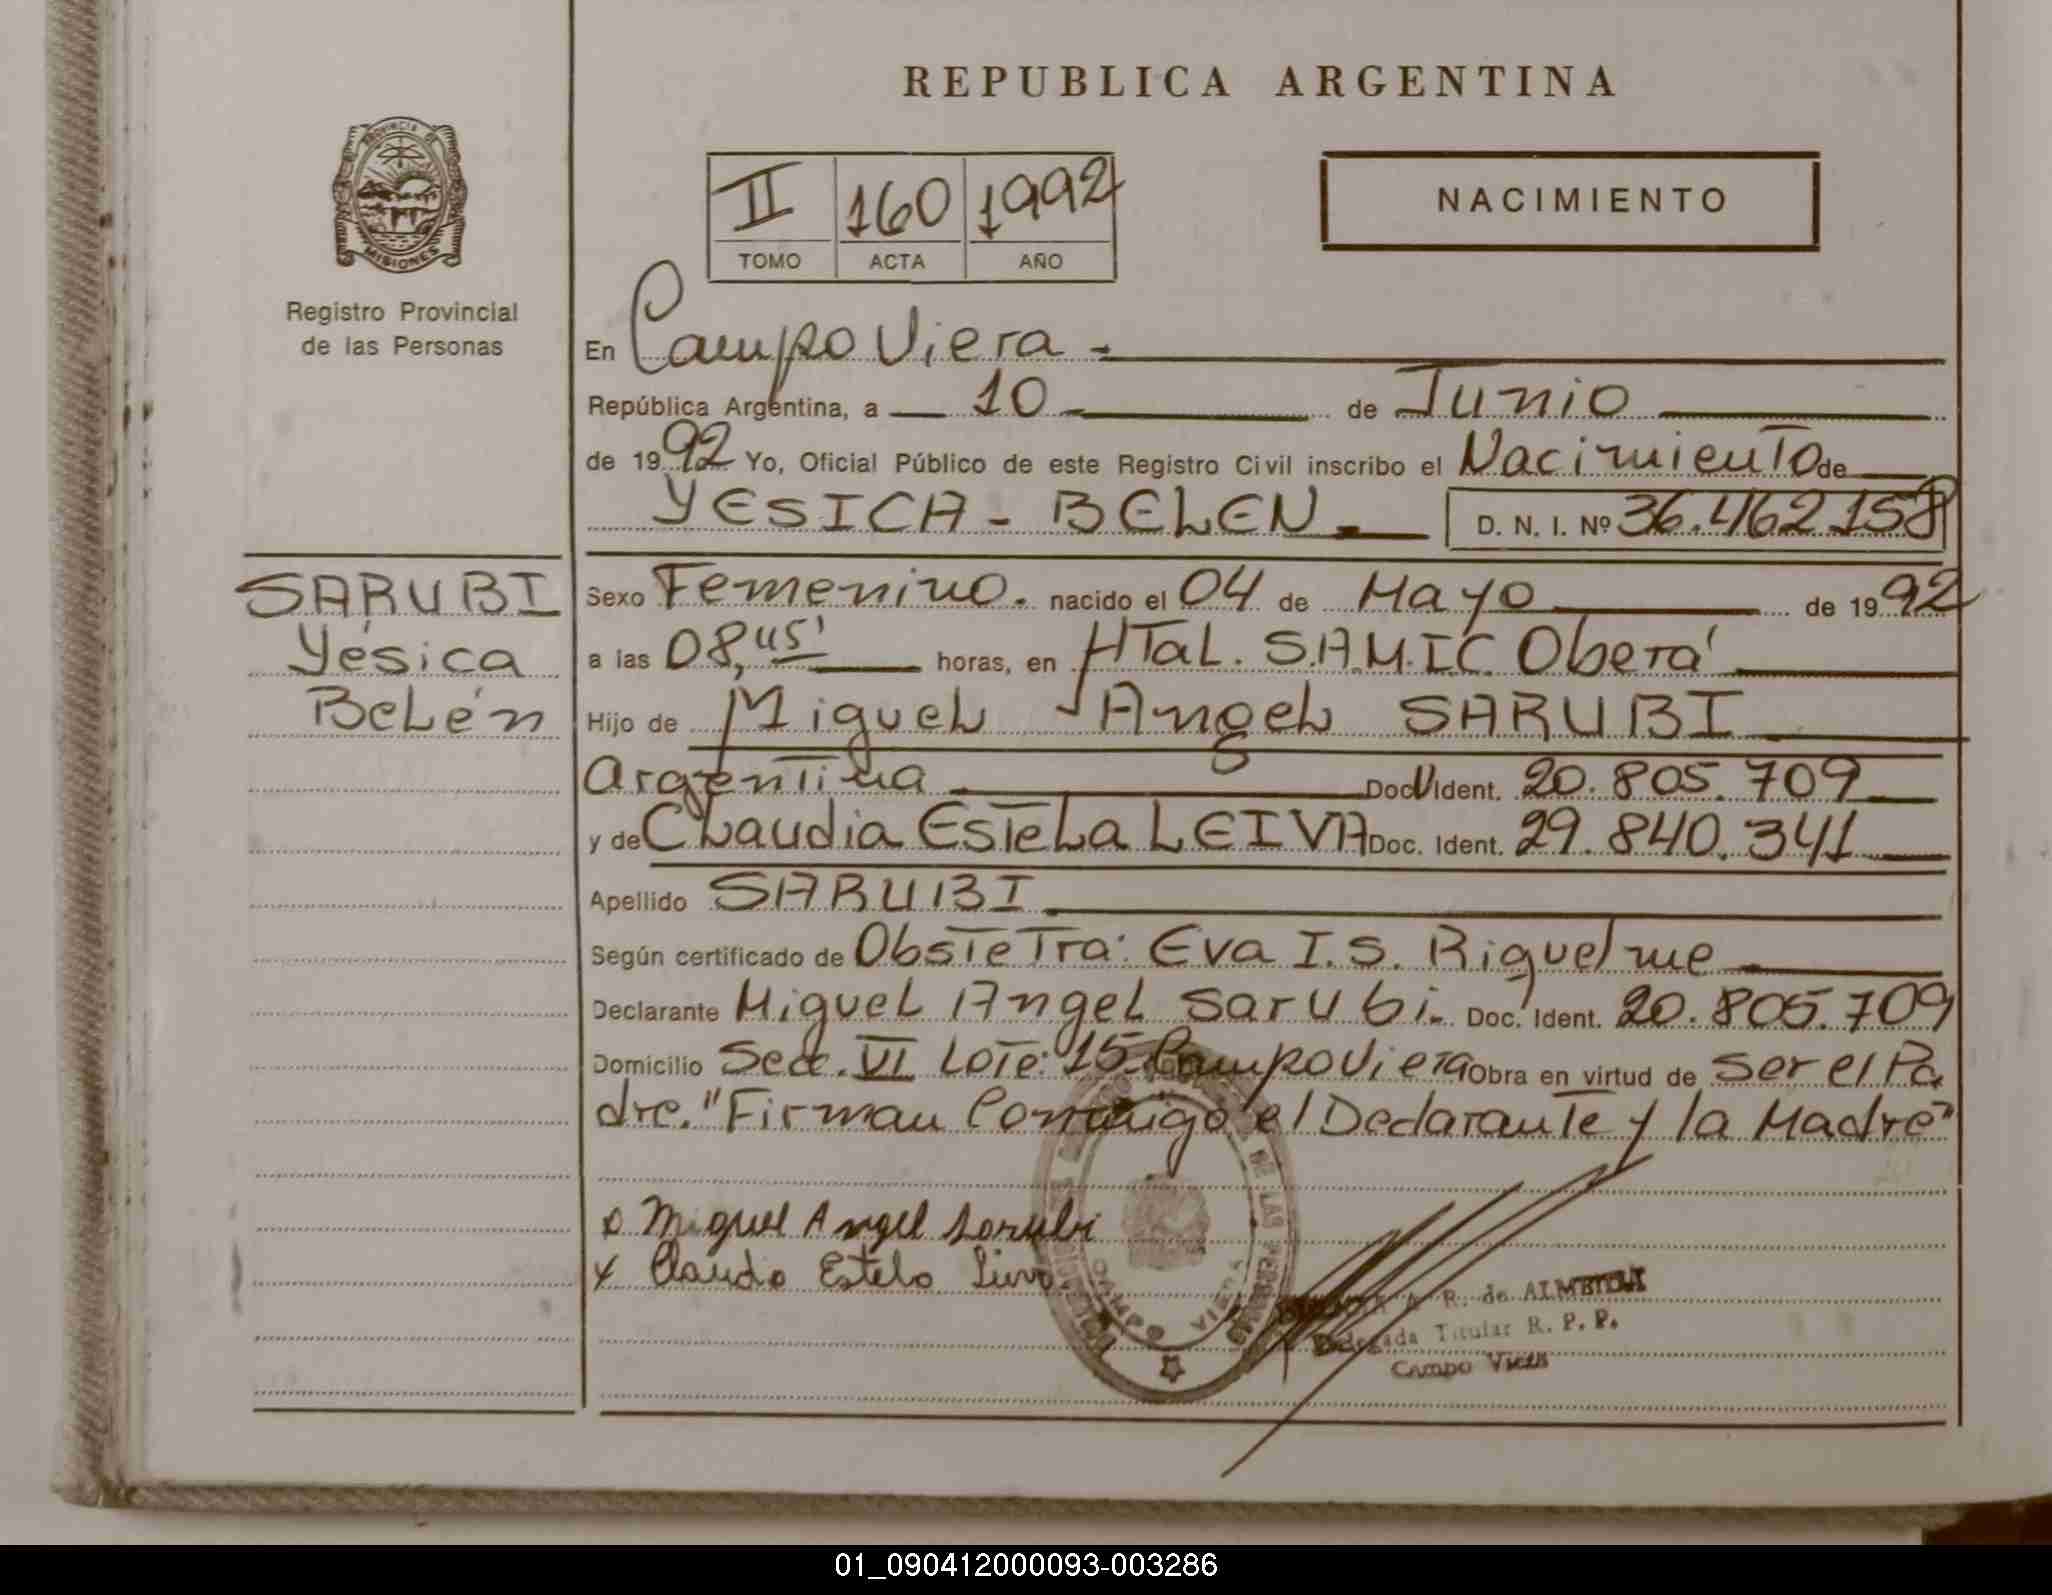 REPUBLICA ARGENTINA
PROVINCIA DE
MISIONES
Registro Provincial
de las Personas
II 160 1992
TOMO ACTA AÑO
NACIMIENTO
En Campo Viera -
República Argentina, a 10 de Junio
de 1992 Yo, Oficial Público de este Registro Civil inscribo el Nacimiento de
YESICA - BELEN D. N. I. Nº 36.462.158
SARUBI
Yésica
Belén
Sexo Femenino. nacido el 04 de Mayo de 1992
a las 08,45' horas, en HTaL. S.A.M.I.C. Oberá
Hijo de MigueL AngeL SARUBI
Argentina Doc. U Ident. 20.805.709
y de CLaudia EsteLa LEIVA Doc. Ident. 29.840.341
Apellido SARUBI
Según certificado de Obstetra: Eva I.S. Riquelme
Declarante MigueL AngeL Sarubi. Doc. Ident. 20.805.709
Domicilio Secc. VI Lote: 15 Campo Viera Obra en virtud de ser el Pa
dre. "Firman Conmigo el Declarante y la Madre"
x Miguel Angel Sarubi
x Claudia Estela Leiva
DE LAS PERSONAS
CAMPO VIERA
A. R. de ALMEIDA
Delegada Titular R. P. P.
Campo Viera
01_090412000093-003286